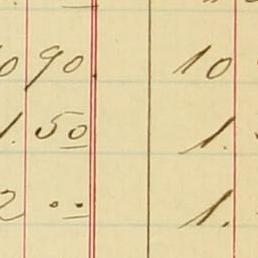 90 10
1. 50 1.
2 .. 1.